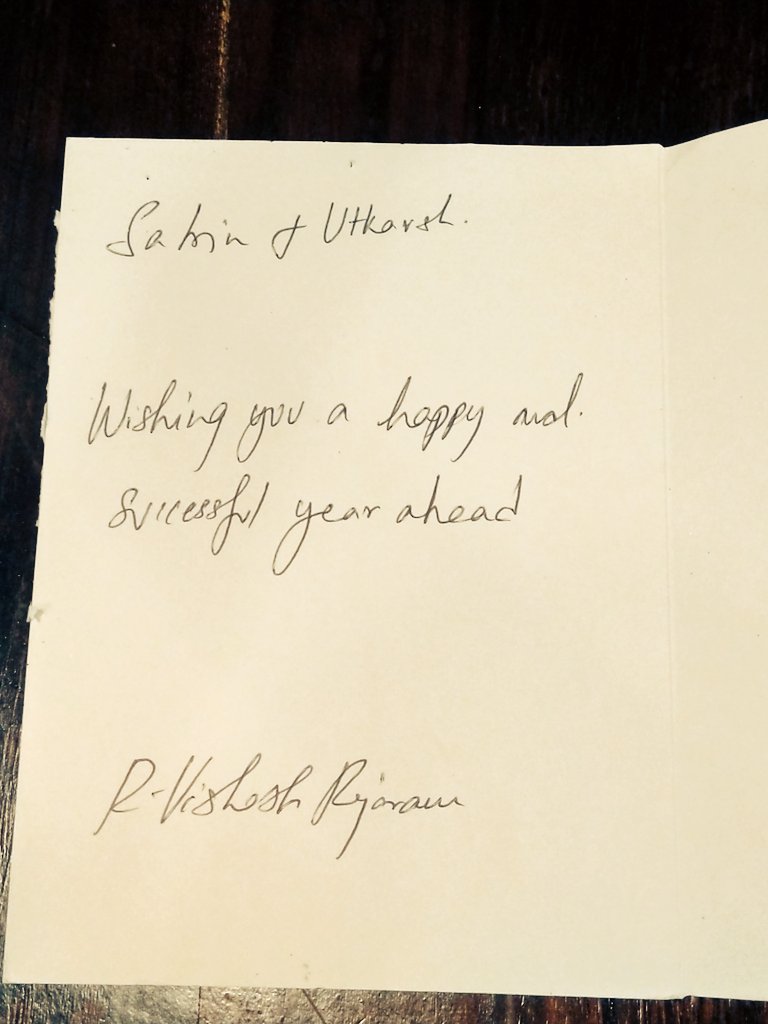 Sabrin & Utkarsh.
Wishing you a happy and.
Successful year ahead
R. Vishesh Rajaram